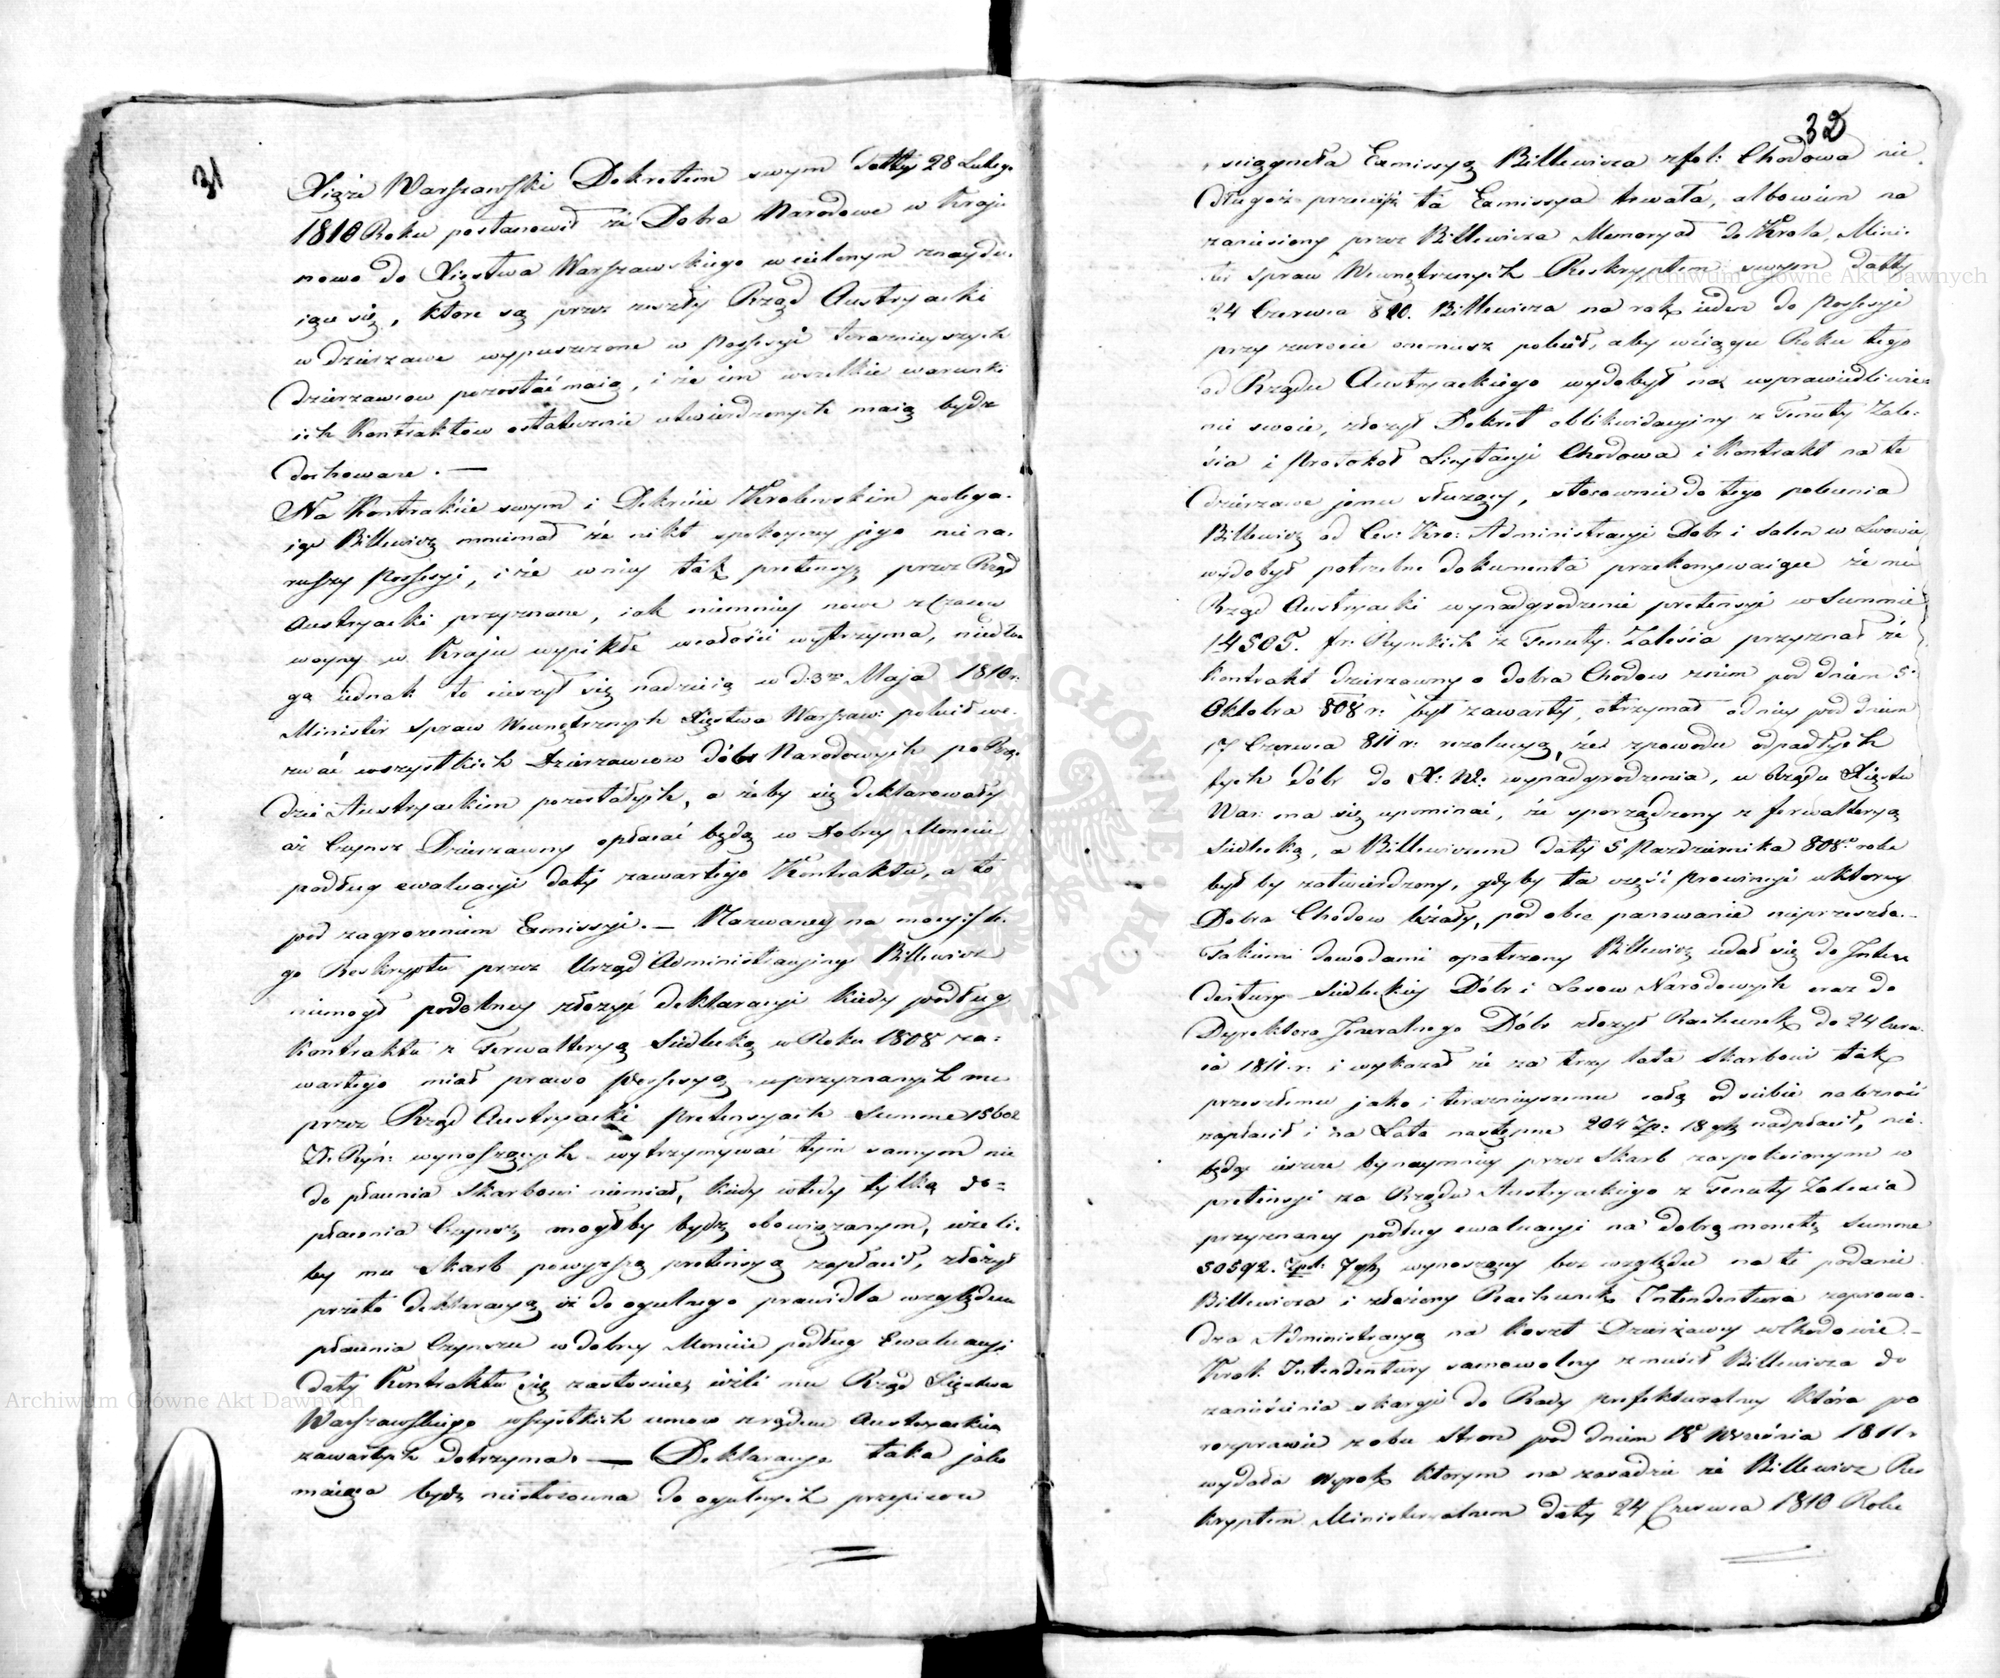 31
Xiąże Warszawski Dekretem swym datty 28 Lutego
1810 Roku postanowił że Dobra Narodowe w Kraju
nowo do Xięstwa Warszawskiego wcielonym znaydu-
iące się, które są przez zeszły Rząd Austryacki
w dzierzawę wypuszczone w Possessyi teraznieyszych
Dzierzawcow pozostać maią, i że im wszelkie warunki
ich Kontraktow ostatecznie utwierdzonych maią bydz
dochowane. —
Na Kontrakcie swym i Dekrecie Krolewskim polega-
iąc Billewicz mniemał że nikt spokoyney jego nie na-
ruszy Possessyi, i że w niey tak pretensye przez Rząd
Austryacki przyznane, iak niemniey nowe z czasow
woyny w Kraju wypikłe wytrzyma, niedłu
gą iednak to cieszył się nadzieią w d. 3m Maja 1810 r.
Minister Spraw Wewnętrznych Xięstwa Warszaw: polecił we-
zwać wszystkich Dzierzawcow dóbr Narodowych po Rzą-
dzie Austryackim pozostałych, a żeby się deklarowały
aż Czynsz Dzierzawny opłacać będą w Dobrey Monecie
podług ewaluacyi daty zawartego Kontraktu, a to
pod zagrożeniem Exmissyi. — Wezwany na mocy te-
go Reskryptu przez Urząd Administracyiny Billewicz
niemogł podobney złożyć deklaracyi kiedy podług
Kontraktu z Ferwalteryą Siedlecką w Roku 1808 za-
wartego miał prawo Possessyą w przyznanych mu
przez Rząd Austryacki pretensyach Summe 15602
Zł. Ryn: wynoszących wytrzymywać tym samym nic
do płacenia Skarbowi niemiał, kiedy wtedy tylko do-
płacenia Czynszu mogłby bydz obowiązanym, ieżeli-
by mu Skarb powyższą pretensyą zapłacił, złożył
przeto deklaracyą iż do ogulnego prawidła względem
płacenia Czynszu w dobrey Monecie podług Ewaluacyi
daty Kontraktu się zastosuie, ieżeli mu Rząd Xięstwa
Warszawskiego wszystkich umow z rządem Austryackim
zawartych dotrzyma. — Deklaracya taka jako
maiąca bydz niestosowna do ogulnych przepisow
32
sciągneła Exmissyą Billewicza z fol: Chodowa nie
Długoż przecięż ta Exmissya trwała, albowiem na
zaniesiony przez Billewicza Memoryał do Krola, Mini-
ster Spraw Wewnętrznych Reskryptem swym datty
24 Czerwca 810. Billewicza na rok ieden do Possessyi
przy zwrocie onemusz polecił, aby wciągu Roku tego
od Rządu Austryackiego wydobył na usprawiedliwie-
nie swoie, złożył Dekret oblikwidacyiny z Tenuty Zale-
sia i Protokoł Licytacyi Chodowa i Kontrakt na te
dzierzawe jemu służący, stosownie do tego polecenia
Billewicz od Ces: Kro: Administracyi Dobr i Salin w Lwowie
wydobył potrzebne dokumenta przekonywaiące że mu
Rząd Austryacki wynadgrodzenie pretensyi w Summie
14505. fr. Rynskich z Tenuty Zalesia przyznał że
Kontrakt dzierzawny o dobra Chodow z nim pod dniem 5.
Oktobra 808 r: był zawarty, otrzymał od niey pod dniem
17 Czerwca 811 r. rezolucyą, że z powodu odpadłych
tych dóbr do X: W: wynadgrodzenia, u Rządu Xięstw
War: ma się upominać, że sporządzony z ferwalteryą
Siedlecką, a Billewiczem daty 5 Pazdziernika 808 roku
był by zatwierdzony, gdyby ta część Prowincyi w ktorey
Dobra Chodow leżały, pod obce panowanie nieprzeszła. —
Takiemi dowodami opatrzony Billewicz udał się do Inten
dentury Siedleckiey Dóbr i Lasow Narodowych oraz do
Dyrektora Jeneralnego Dóbr złożył Rachunek do 24 Czerw-
ca 1811 r: i wykazał że za trzy lata Skarbowi tak
przeszłemu jako i teraznieyszemu całą od siebie należność
zapłacił i na Lata następne 204 Zp: 18 gr nadpłacił, nie-
będąc ieszcze bynaymniey przez Skarb zaspokoionym w
pretensyi za Rządu Austryackiego z Tenuty Zalesia
przyznaney podług ewaluacyi na dobrą monetę Summe
50592. Zpl: 7 gr wynoszącey bez względu na te podanie
Billewicza i złożony Rachunek Intendentura zaprowa-
dza Administracyą na koszt Dzierżawcy w Chodowie. —
Krok Intendentury samowolny zmusił Billewicza do
zaniesienia skargi do Rady prefekturalney Która po
rozprawie z obu Stron pod dniem 18 Września 1811 r
wydała Wyrok ktorym na zasadzie że Billewicz Res
kryptem Ministeryalnem daty 24 Czerwca 1810 Roku